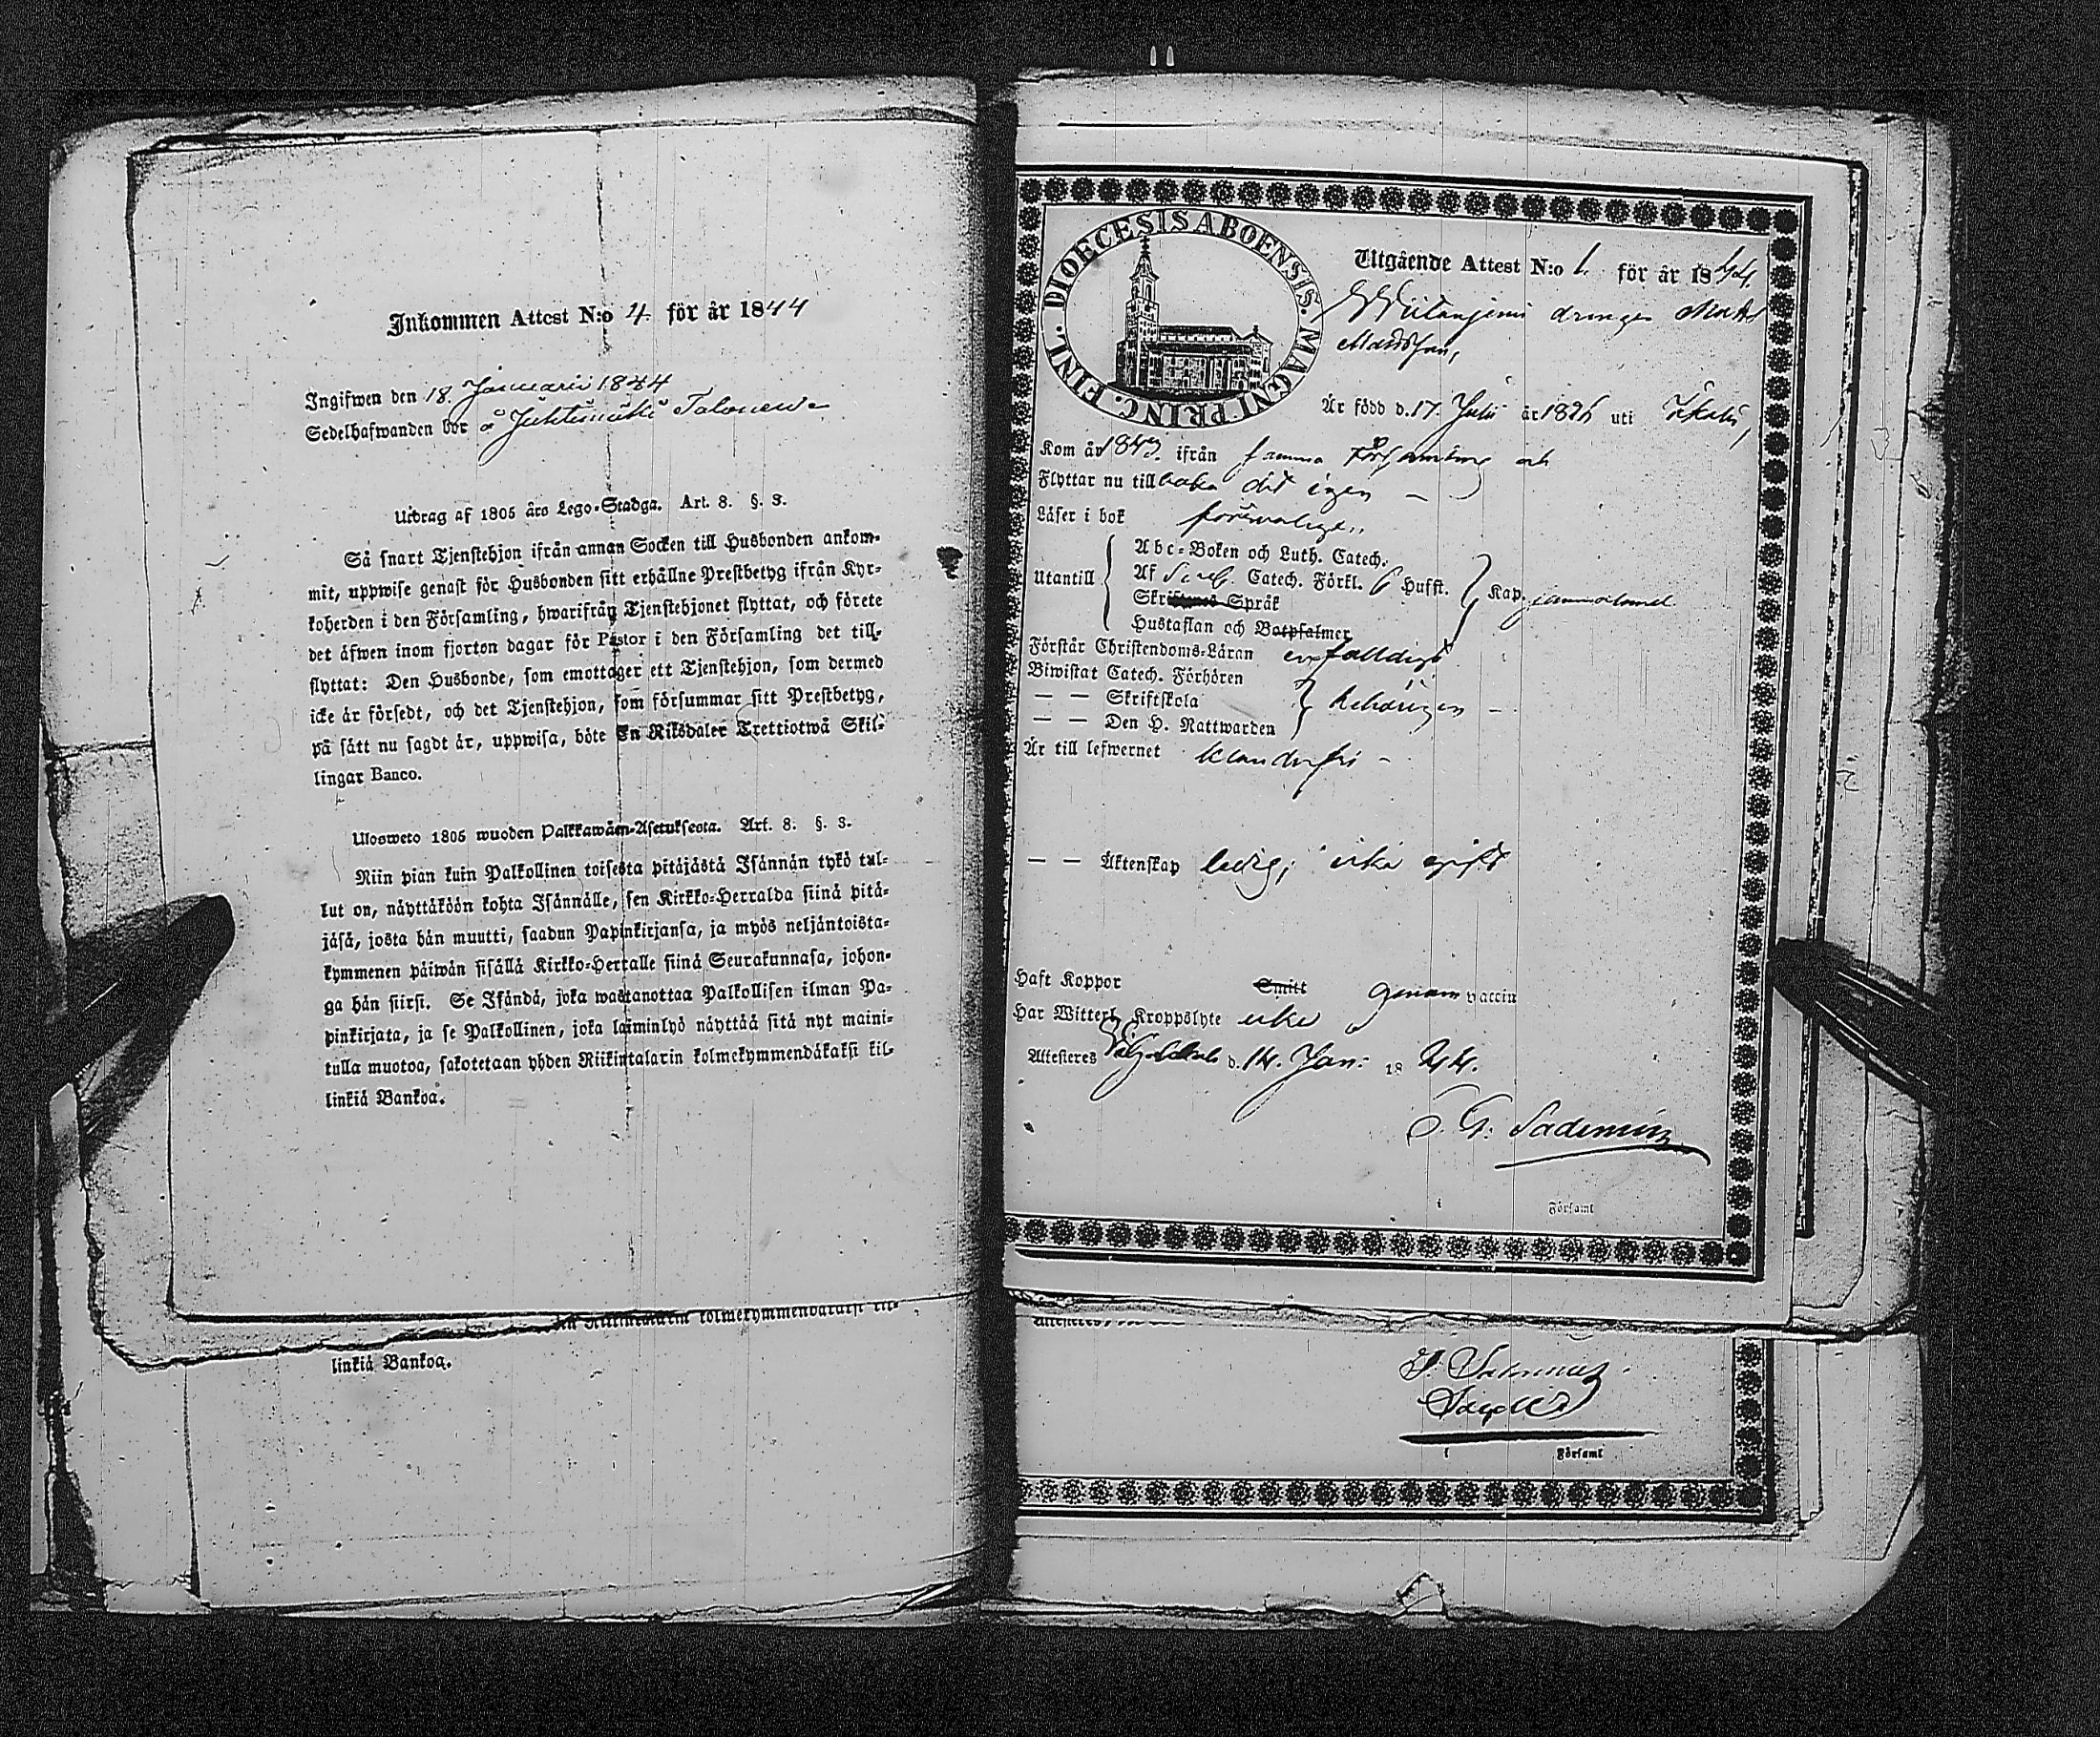 Inkommen Attest N:o 4. för år 1844
Ingifwen den 18. Januarii 1844
Sedelhafwanden bor å
Utdrag af 1805 års Lego-Stadga. Art. 8. §. 3.
Så snart Tjenstehjon ifrån annan Socken till Husbonden ankom-
mit, uppwise genast för Husbonden sitt erhållne Prestbetyg ifrån Kyr-
koherden i den Församling, hwarifrån Tjenstehjonet flyttat, och förete
det äfwen inom fjorton dagar för Pastor i den Församling det till-
flyttat: Den Husbonde, som emottager ett Tjenstehjon, som dermed
icke är försedt, och det Tjenstehjon, som försummar sitt Prestbetyg,
på sätt nu sagdt är, uppwisa, böte En Riksdaler Trettiotwå Skil-
lingar Banco.
Ulosweto 1805 wuoden Palkkawäen-Asetuksesta. Art. 8. §. 3.
Niin pian kuin Palkollinen toisesta pitäjästä Isännän tykö tul-
lut on, näyttäköön kohta Isännälle, sen Kirkko-Herralda siinä pitä-
jäsä, josta hän muutti, saadun Papinkirjansa, ja myös neljäntoista-
kymmenen päiwän sisällä Kirkko-Herralle siinä Seurakunnasa, johon-
ga hän siirsi. Se Isändä, joka wastanottaa Palkollisen ilman Pa-
pinkirjata, ja se Palkollinen, joka laiminlyö näyttää sitä nyt maini-
tulla muotoa, sakotetaan yhden Riikintalarin kolmekymmendäkaksi kil-
linkiä Bankoa.
kolmekymmendäkaksi kil-
linkiä Bankoa.
DIOECESIS ABOENSIS. MAGNI PRINC. FINL.
Utgående Attest N:o 1. för år 1844.
drängen Matts
Mattsson,
Är född d. 17. Julii år 1826 uti
Kom år 1843. ifrån samma Församling och
Flyttar nu tillbaka dit igen —
Läser i bok försvarligen,,
Utantill
Abc-Boken och Luth. Catech.
Af Catech. Förkl. 6 Hufst.
Skriftens Språk
Hustaflan och Botpsalmer
Kap.
Förstår Christendoms-Läran enfalldigt
Biwistat Catech. Förhören
— — Skriftskola
behörigen —
— — Den H. Nattwarden
Är till lefwernet klanderfri —
— — Äktenskap ledig; icke gift
Haft Koppor Smitt genom vaccin
Har Witterl. Kroppslyte icke
Attesteres d. 14. Jan: 1844.
i Församl
Attesteres
i Församl